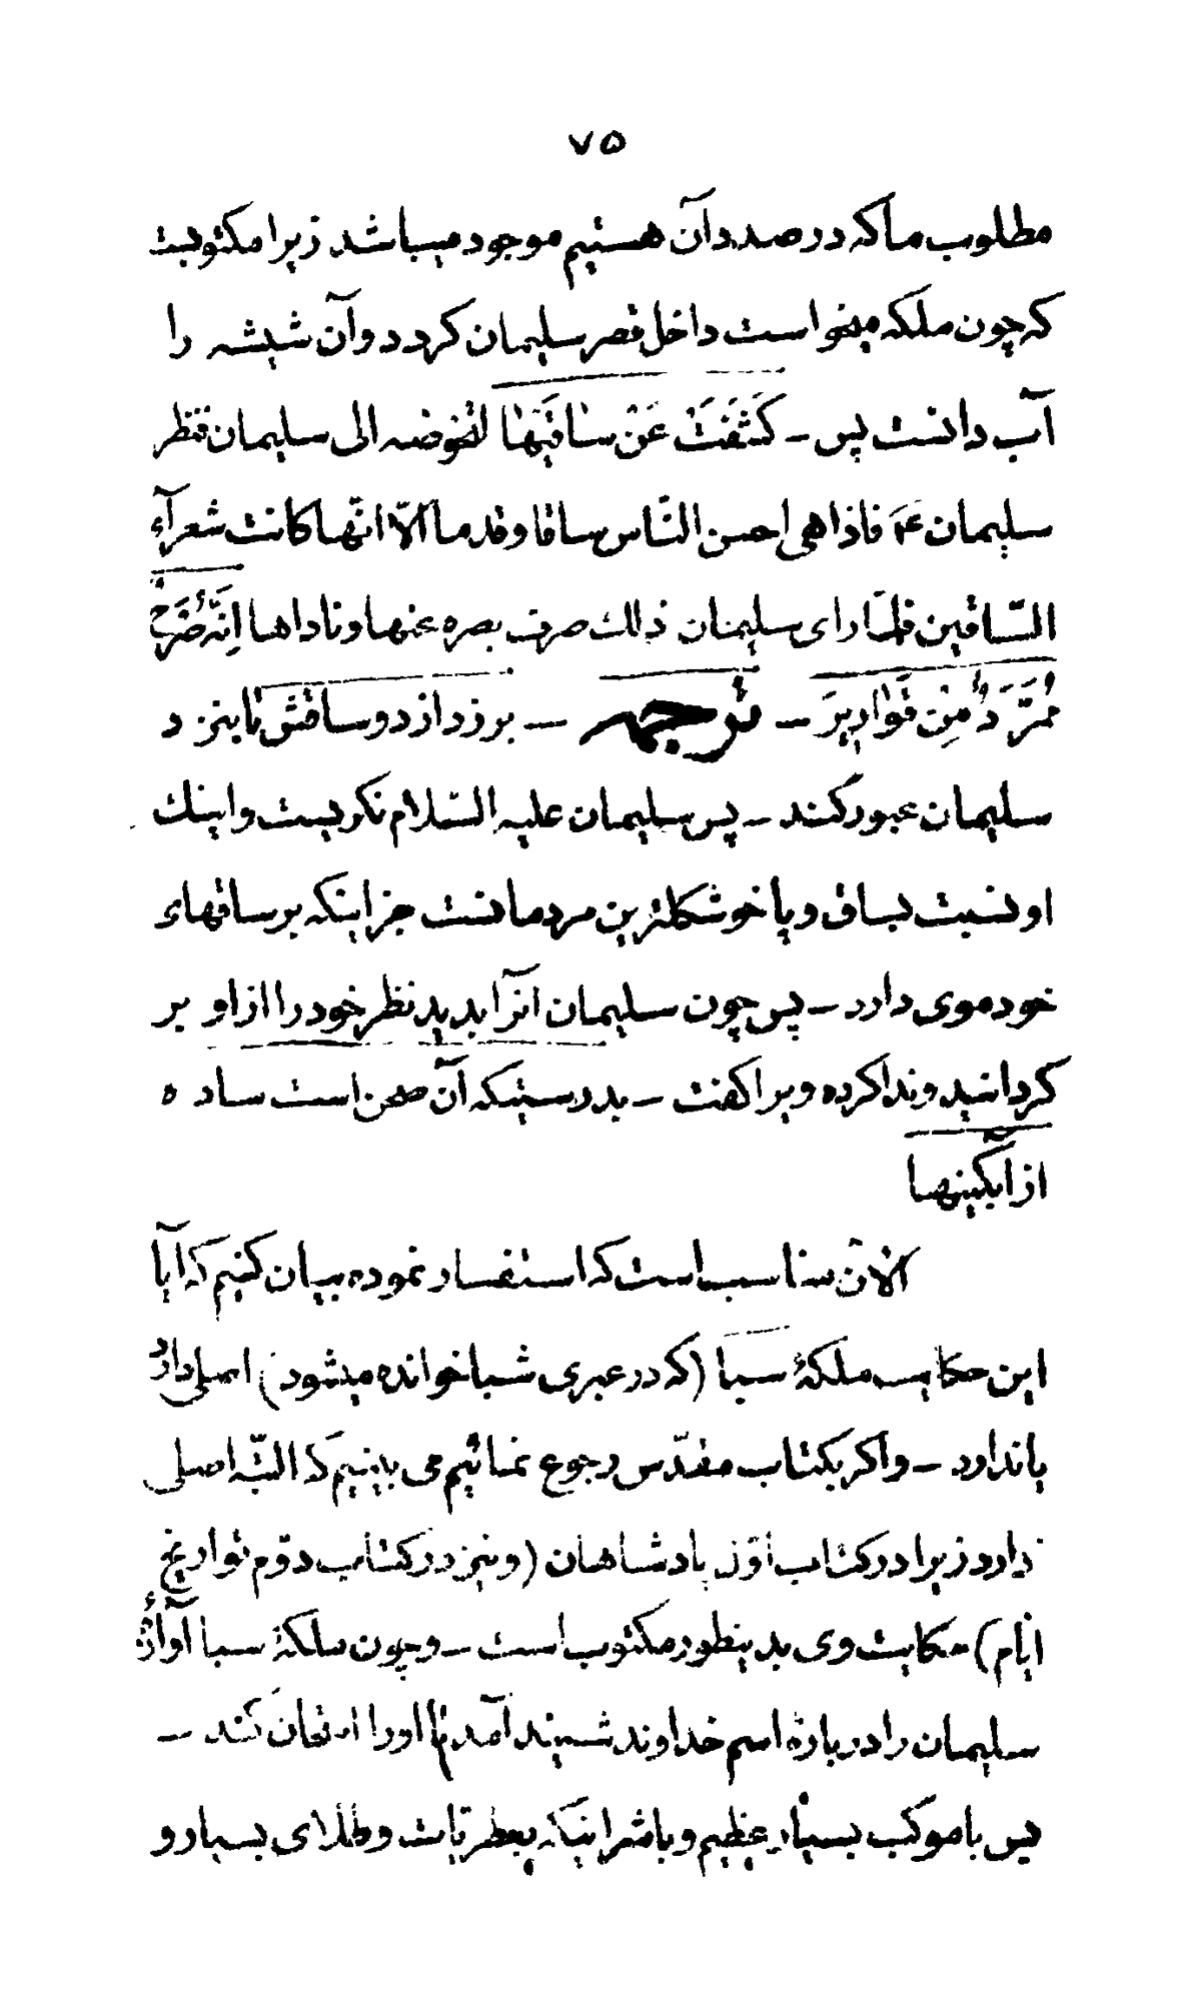 ۷۵
مطلوب ما که در صدد آن هستیم موجود میباشد زیرا مکتوبست
که چون ملکه میخواست داخل قصر سلیمان کردد و آن شیشه را
آب دانست پس ــ كَشَفَتْ عَنْ سَاقَيْهَا لتخوضه الى سليمان فنظر
سليمان عم فاذا هی احسن النّاس ساقا و قدما الّا انّها كانت شعرآء
السّاقين فلمّا رای سليمان ذلك صرف بصره عنها و ناداها اِنَّهُ صَرْحٌ
مُمَرَّدٌ مِنْ قَوَارِيرَ ــ ترجمه ــ برزد از دو ساقش تا بنزد
سلیمان عبور کند ــ پس سلیمان علیه السّلام نکریست و اینك
او نسبت بساق و پا خوشکلترین مردمانست جز اینکه بر ساقهای
خود موی دارد ــ پس چون سلیمان انرا بدید نظر خود را از او بر
کردانید و ندا کرده ویرا کفت ــ بدرستیکه آن صحن است ساده
از آبکینها
الآن مناسب است که استفسار نموده بیان کنیم که آیا
این حکایت ملکۀ سبا (که در عبری شبا خوانده میشود) اصلی دارد
یا ندارد ــ و اکر بکتاب مقدّس رجوع نمائیم می بینیم که البتّه اصلی
دارد زیرا در کتاب اوّل پادشاهان (و نیز در کتاب دوّم تواریخ
ایّام) حکایت وی بدینطور مکتوب است ــ و چون ملکۀ سبا آوازۀ
سلیمان را دربارۀ اسم خداوند شنید آمد تا او را امتحان کند ــ
پس با موکب بسیار عظیم و با شترانیکه بعطریّات و طلای بسیار و